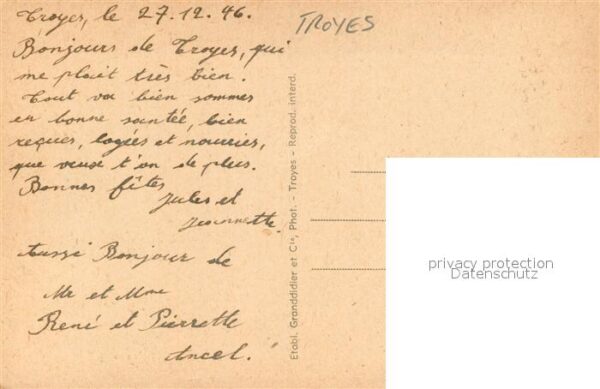 Troyes, le 27.12.46.
TROYES
Bonjours de Troyes, qui
me plait très bien.
Tout va bien sommes
en bonne santée, bien
reçues, logées et nourries,
que veux t'on de plus.
Bonnes fêtes
Jules et
Jeannette.
Aussi Bonjour de
Mr et Mme
René et Pierrette
Ancel.
Etabl. Granddidier et Cie, Phot. - Troyes - Reprod. interd.
privacy protection
Datenschutz